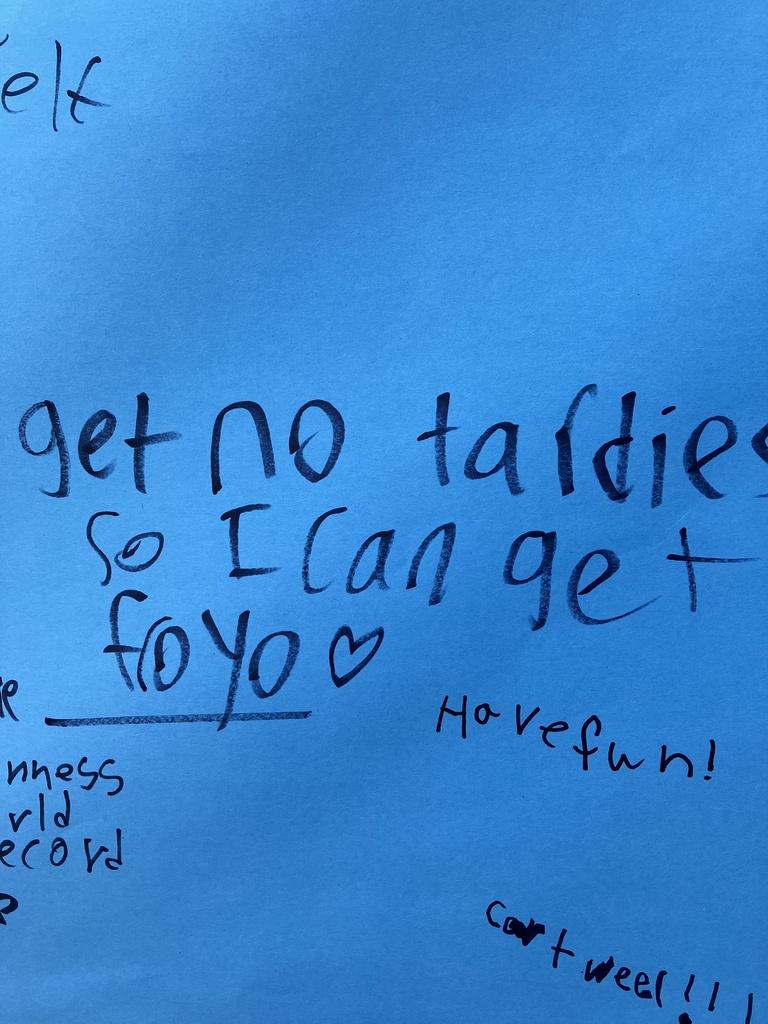 get no tardies
so I can get
froyo
Have fun!
nness
rld
ecord
cartweel!!!